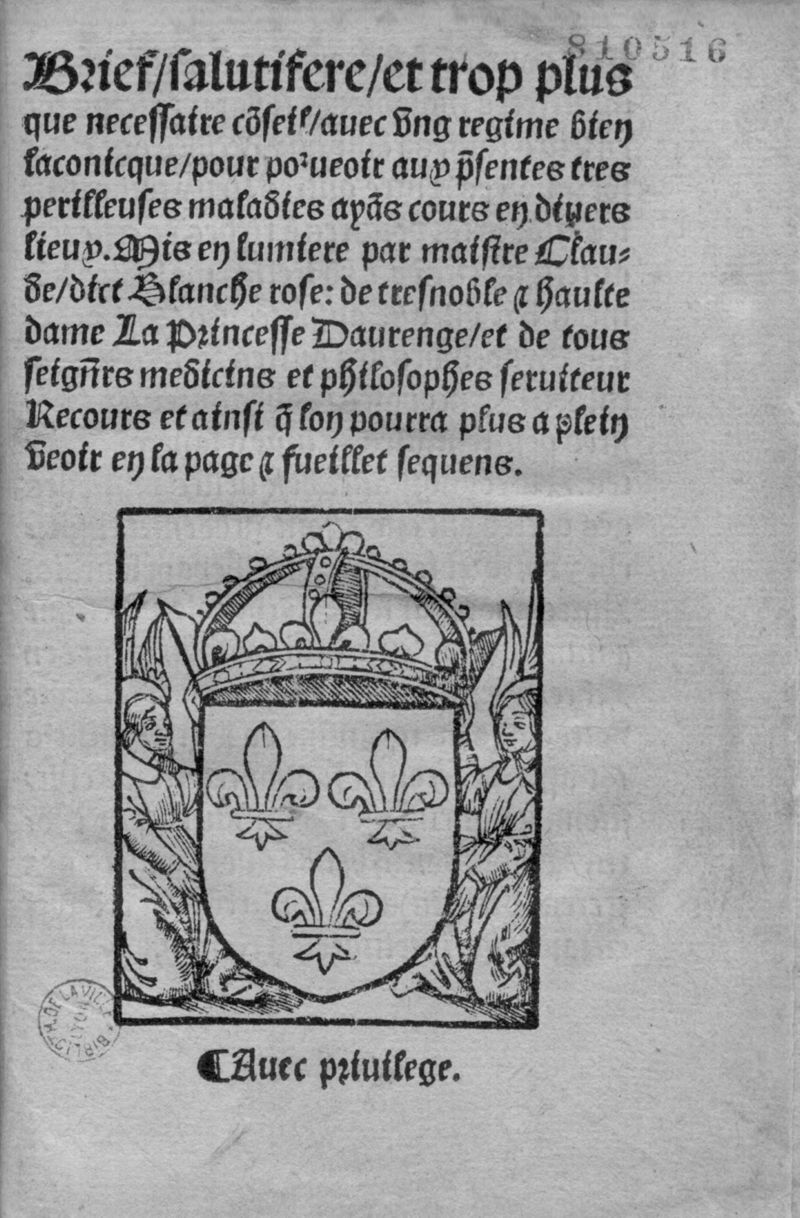 810516
Brief/salutifere/et trop plus
que necessaire cõseil/auec vng regime bien
laconicque/pour poᷣueoir aux p̃sentes tres
perilleuses maladies ayãs cours en diuers
lieux. Mis en lumiere par maistre Clau⸗
de/dict Blanche rose: de tresnoble ⁊ haulte
dame La Princesse Daurenge/et de tous
seigñrs medicins et philosophes seruiteur
Recours et ainsi q̃ lon pourra plus a plein
veoir en la page ⁊ fueillet sequens.
BIBLIOTH. DE LA VILLE
¶Auec priuilege.